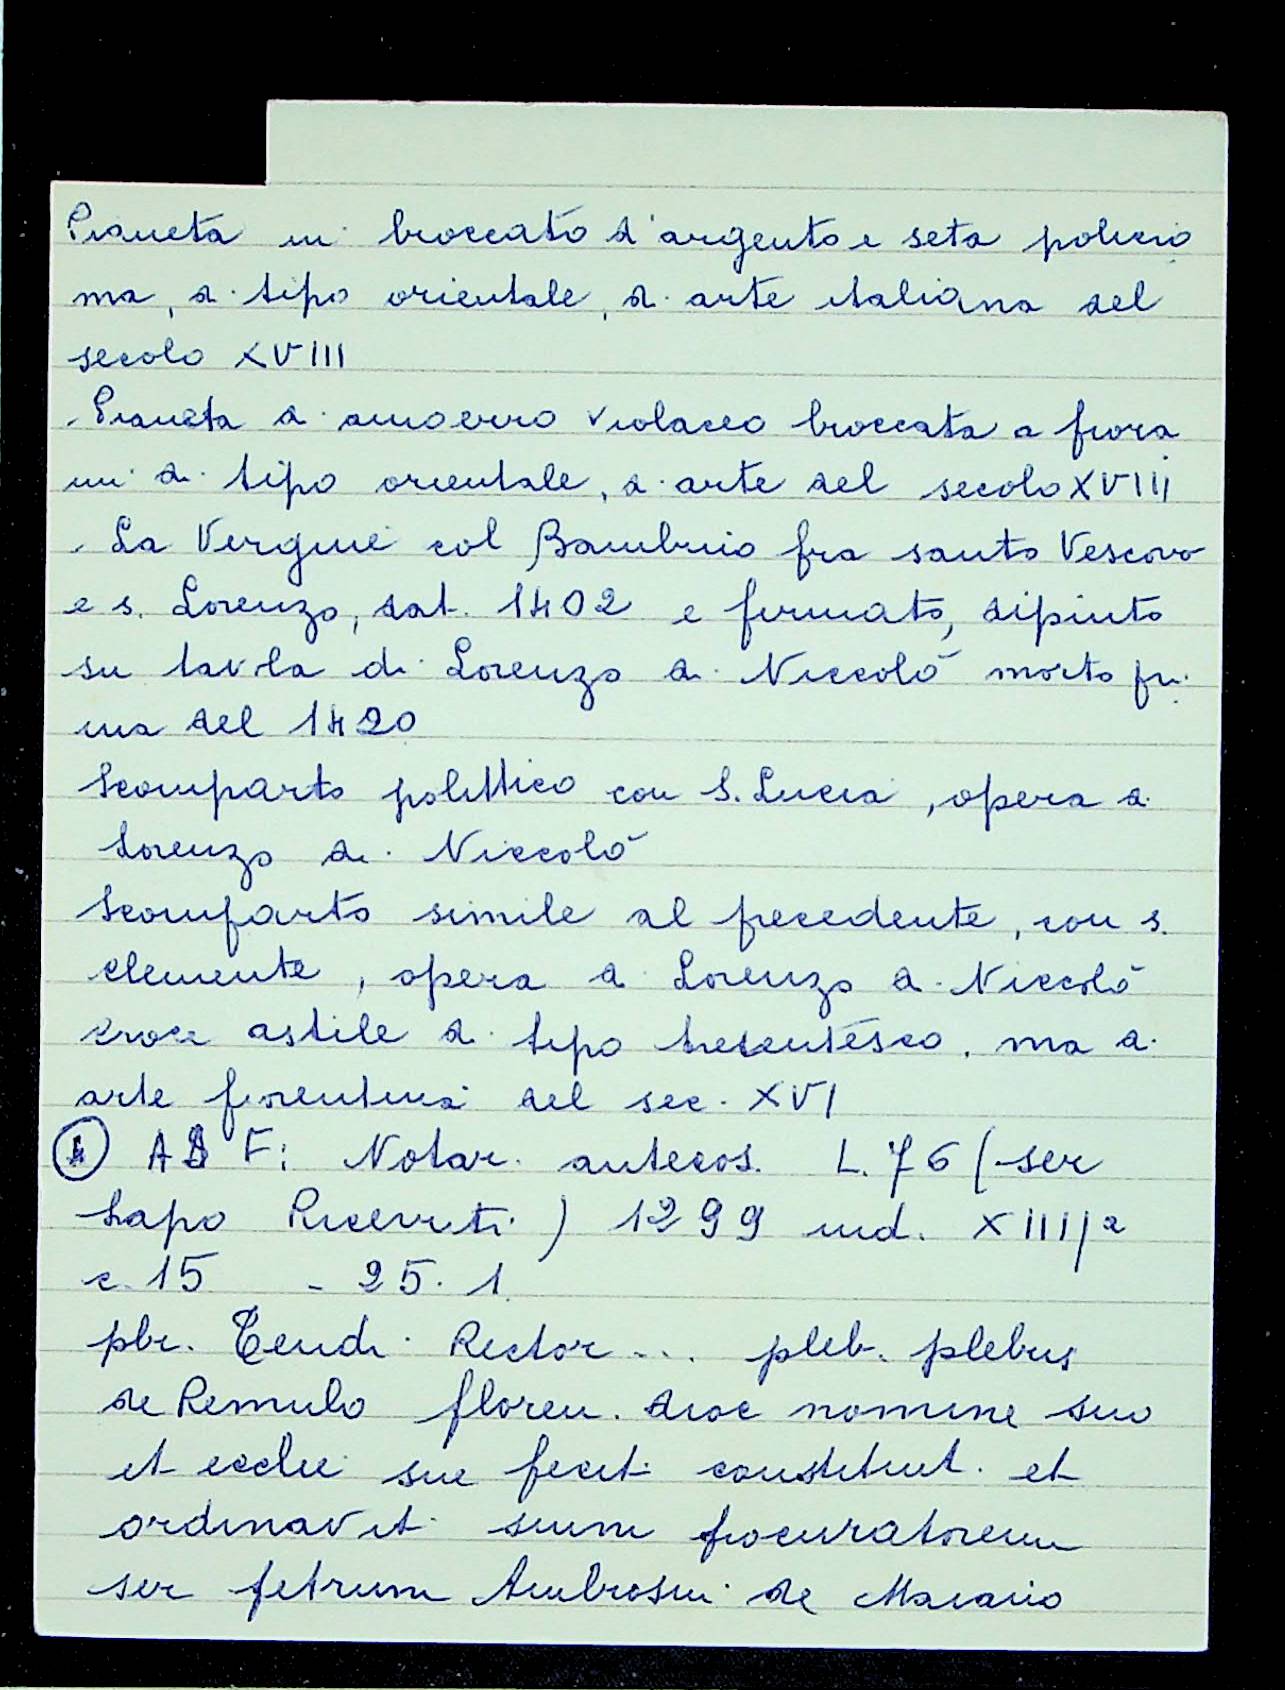 Pianeta in broccato d'argento e seta policro
ma, di tipo orientale, di arte italiana del
secolo XVIII
. Pianeta di amoerro violaceo broccata a fiora
mi di tipo orientale, di arte del secolo XVIII
. La Vergine col Bambino fra santo Vescovo
e s. Lorenzo, dat. 1402 e firmato, dipinto
su tavla di Lorenzo di Niccolò morto pri
ma del 1420
Scomparto polittico con S. Lucia, opera di
Lorenzo di Niccolò
Scomparto simile al precedente, con s.
Clemente, opera di Lorenzo di Niccolò
croce astile di tipo trecentesco, ma di
arte fiorentina del sec. XVI
ASF: Notar. antecos. L. 76 (ser
Lapo Riceviti) 1299 ind. XIIIª
c. 15 - 25. 1.
pbr. Cendi Rector ... pleb. plebus
de Remulo floren. dioc nomine suo
et ecclie sue fecit constituit et
ordinavit suum procuratorem
ser petrum Ambrosini de